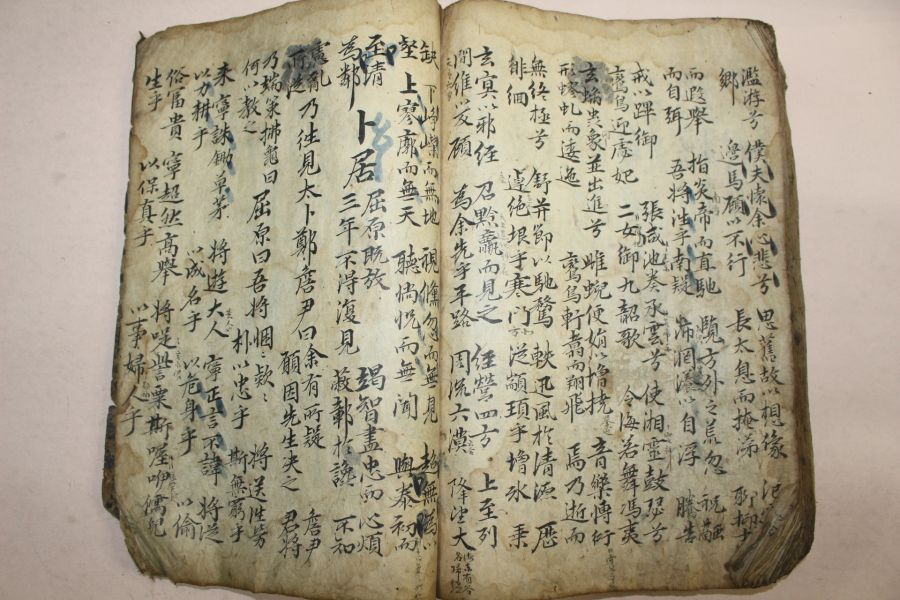 濫游兮 僕夫懷余心悲兮 思舊故以想像
鄉 邊馬顧以不行 長太息而掩涕 聊抑
而遐舉 指炎帝而直馳 覽方外之荒忽 祝融
而自弭 吾將徃乎南疑 沛罔瀁以自浮 騰告
戒以蹕御 張咸池奏承雲兮 使湘靈鼓瑟兮
鸞鳥迎虙妃 二女御九韶歌 令海若舞馮夷
玄螭虫象並出進兮 雌蜺便娟以增撓 音樂博衍
形蟉虬而逶迤 鸞鳥軒翥而翔飛 焉乃逝而
無終極兮 舒并節以馳騖 軼迅風於清源 歷
徘徊 逴絶垠乎寒門 從顓頊乎增氷 乘
玄㝠以邪徑 召黔羸而見之 徑營四方 上至列
間維以反顧 爲余先乎平路 周流六漠 降望大
缺 下崢嶸而無地 視儵忽而無見 超無爲以
壑 上寥廓而無天 聽惝怳而無聞 與泰初而
至清
爲鄰 卜居 屈原既放 竭智盡忠而
三年不得復見 蔽鄣於讒 不知
心煩
慮亂 乃徃見太卜鄭詹尹曰余有所疑 詹尹
所從 願因先生决之 君將
乃端策拂龜曰 屈原曰吾將悃〻款〻 將送徃勞
何以教之 朴以忠乎 斯無窮乎
未 寧誅鋤草茅 將遊大人 寧正言不諱 將從
以力耕乎 以成名乎 以危身乎 以偷
俗富貴 寧超然高舉 將哫訾栗斯喔咿儒兒
生乎 以保真乎 以事婦人乎